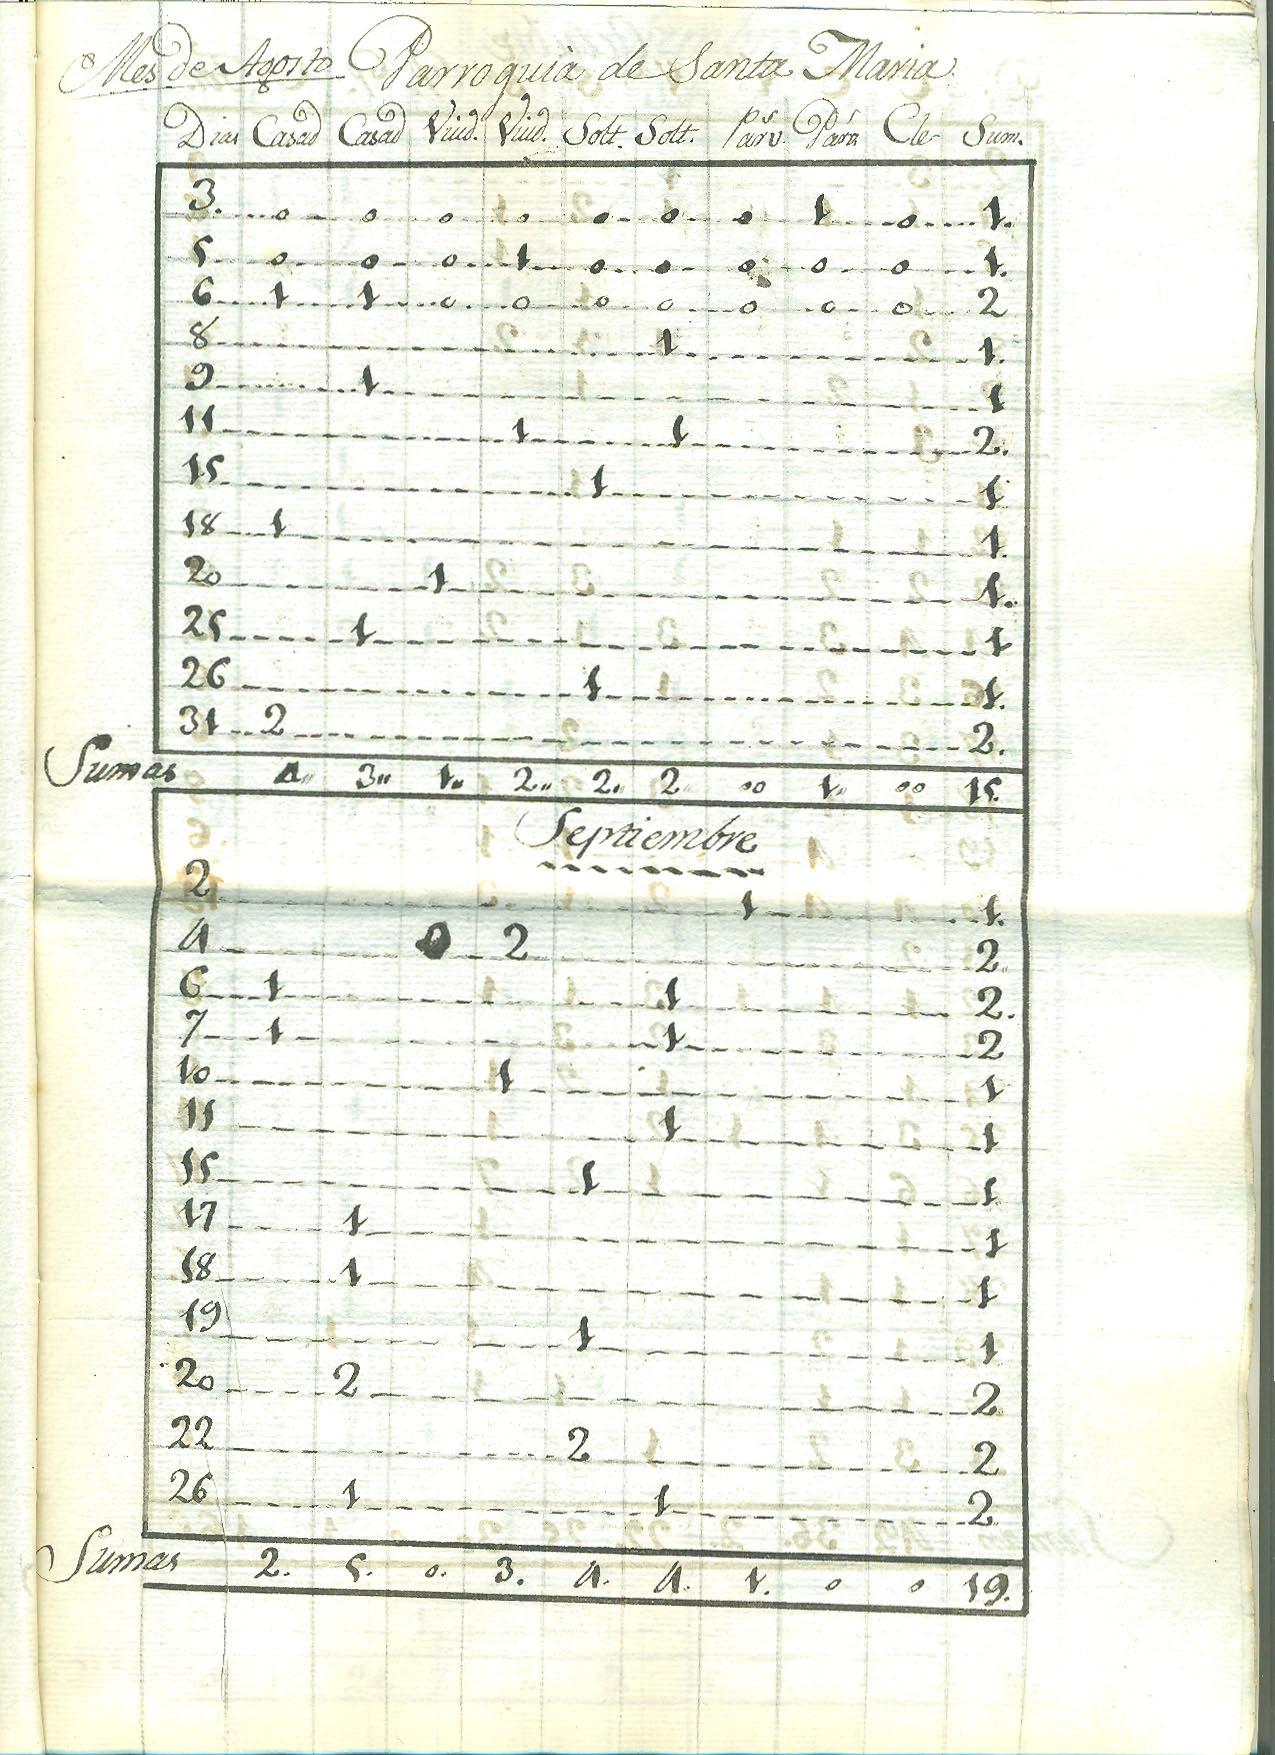 Mes de Agosto Parroquia de Santa Maria.
Dias Casad Casad Viud. Viud. Solt. Solt. Parv. Parv Cle- Sum.
3. o o o o o o o 1 o 1.
5 o o o 1 o o o o o 1.
6 1 1 o o o o o o o 2
8 1 1.
9 1 1
11 1 1 2.
15 1 1
18 1 1.
20 1 1.
25 1 1
26 1 1.
31 2 2.
Sumas 4.. 3.. 1.. 2.. 2.. 2.. oo 1.. oo 15.
Septiembre
2 1 1.
4 2 2.
6 1 1 2.
7 1 1 2
10 1 1
11 1 1
15 1 1
17 1 1
18 1 1
19 1 1
20 2 2
22 2 2
26 1 1 2
Sumas 2. 5. o. 3. 4. 4. 1. o o 19.